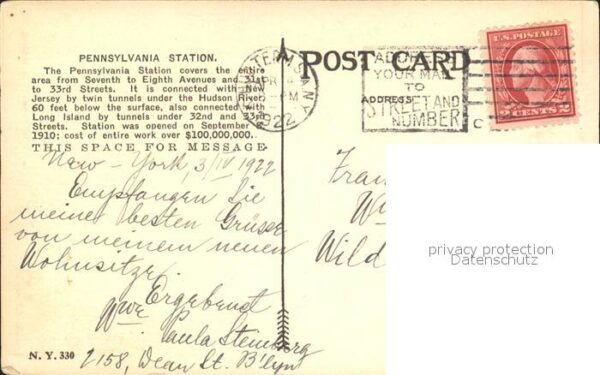 PENNSYLVANIA STATION.
The Pennsylvania Station covers the entire
area from Seventh to Eighth Avenues and 31st
to 33rd Streets. It is connected with New
Jersey by twin tunnels under the Hudson River,
60 feet below the surface, also connected with
Long Island by tunnels under 32nd and 33rd
Streets. Station was opened on September
1910; cost of entire work over $100,000,000.
THIS SPACE FOR MESSAGE
New-York, 3/IV 1922
Empfangen Sie
meine besten Grüsse
von meinem neuen
Wohnsitze.
Ergebenst
Wwe Paula Steinberg
2158, Dean St. B'lyn
N. Y. 330
POST CARD
ADDRESS
1922
YOUR MAIL
TO
STREET AND
NUMBER
U.S. POSTAGE
2 CENTS 2
Wild
privacy protection
Datenschutz